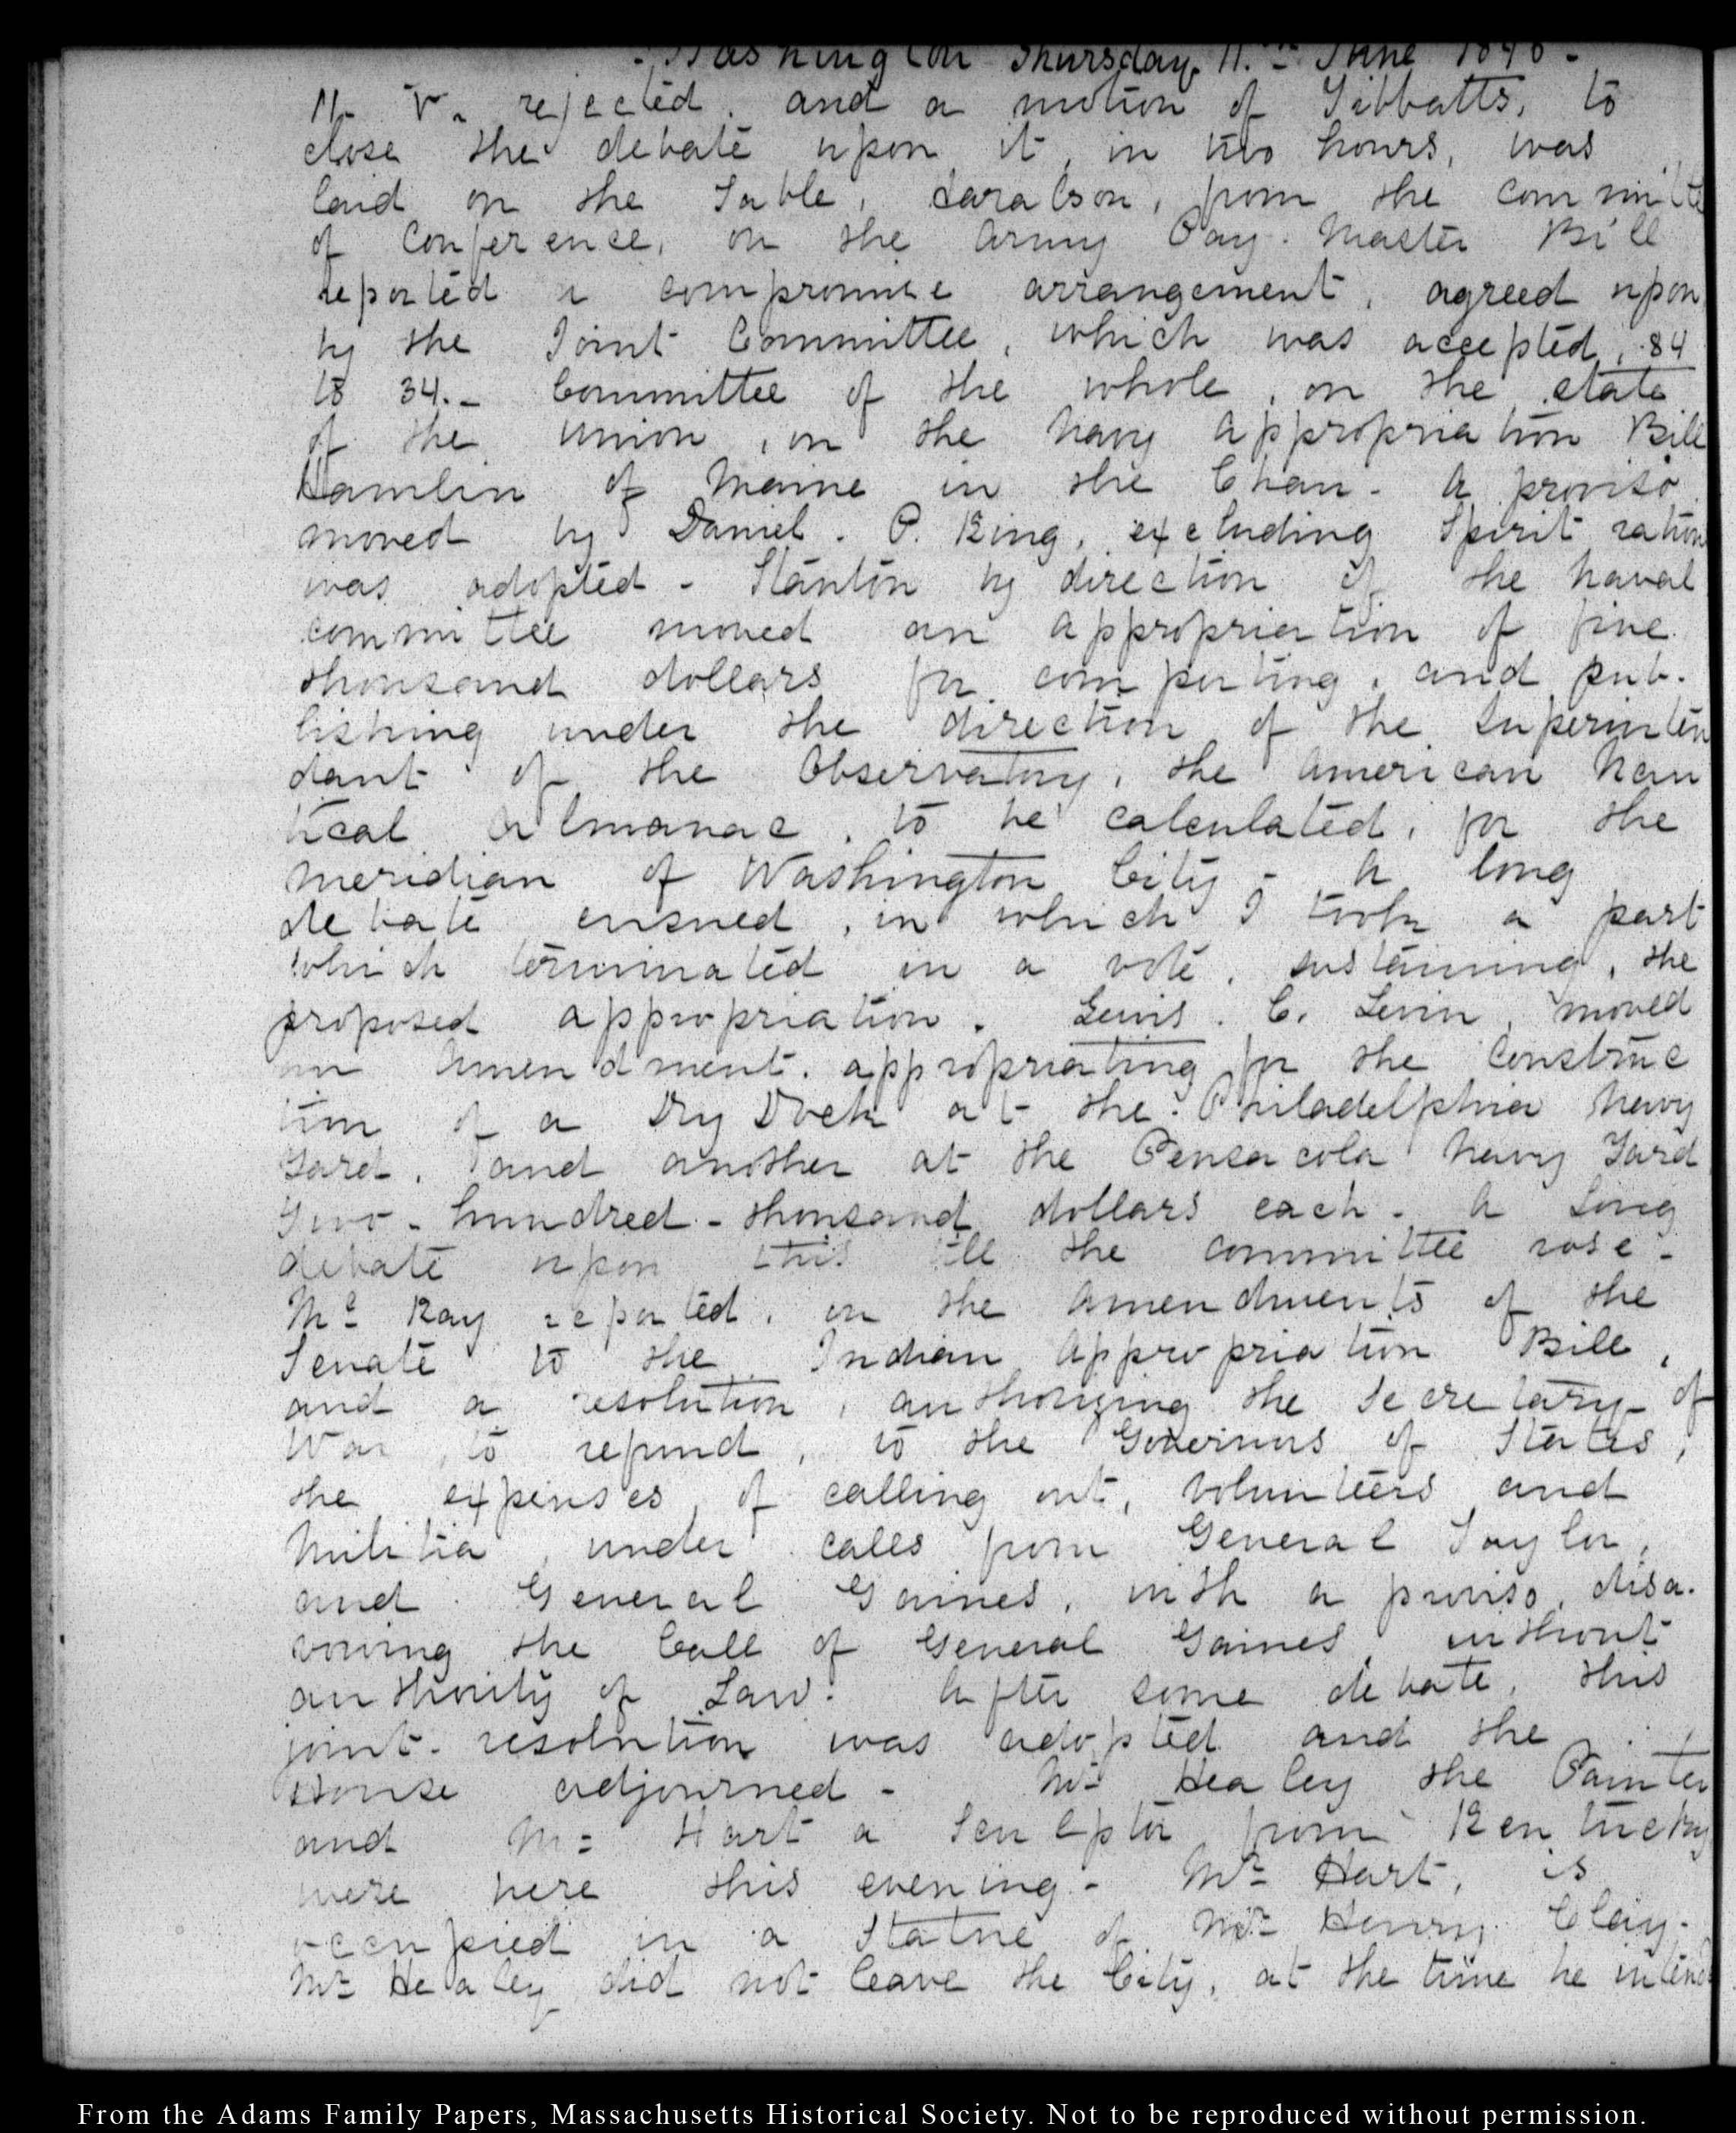 Washington Thursday 11.th June 1846 -
11. V. rejected. and a motion of Tibbatts, to
close the debate upon it, in two hours, was
laid on the Table, Haralson, from the committe
of Conference, on the Army Pay-Master Bill
reported a compromise arrangement, agreed upon
by the Joint Committee, which was accepted, 84
to 34.- Committee of the whole, on the state
of the union, on the Navy Appropriation Bill
Hamlin of Maine in the Chair - A proviso
moved by Daniel. P. King, excluding Spirit ration
was adopted - Stanton by direction of the Naval
committee moved an appropriation of five
thousand dollars for computing, and pub-
lishing under the direction of the Superinten
dant of the Observatory, the American Nau
tical Almanac, to be calculated, for the
meridian of Washington City - A long
debate ensued, in which I took a part
which terminated in a vote, sustaining, the
proposed appropriation. Lewis. C. Levin, moved
an Amendment. appropriating for the Construc
tion of a Dry Dock at the Philadelphia Navy
Yard, and another at the Pensacola Navy Yard
Two-hundred-thousand dollars each. A long
debate upon this till the committee rose -
Mc Kay reported, on the Amendments of the
Senate to the Indian Appropriation Bill,
and a resolution, authorizing the Secretary of
War, to refund, to the Governors of States,
the expenses, of calling out, volunteers and
Militia, under calls from General Taylor,
and General Gaines, with a proviso, disa-
vowing the Call of General Gaines, without
authority of Law. After some debate, this
joint-resolution was adopted and the
House adjourned - Mr Healey the Painter
and Mr Hart a Sculptor from Kentucky
were here this evening - Mr Hart, is
occupied in a Statue of Mr Henry Clay.
Mr Healey did not leave the City, at the time he intend